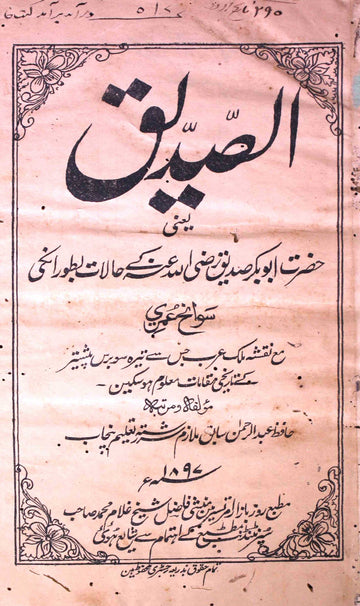 ۲۹۰
الصّدیق
یعنی
حضرت ابوبکر صدیق رضی اللہ عنہ کے حالات بطور
سوانح عمری
مع نقشہ ملک عرب جس سے تیرہ سو برس پیشتر
کے تاریخی مقامات معلوم ہو سکیں۔
مؤلفہ و مرتبہ
حافظ عبدالرحمٰن سابق ملازم سررشتہ تعلیم پنجاب
۱۸۹۷ء
مطبع روز بازار امرتسر میں منشی فاضل شیخ غلام محمد صاحب
کے اہتمام سے شائع ہوئی
تمام حقوق بذریعہ رجسٹری محفوظ ہیں